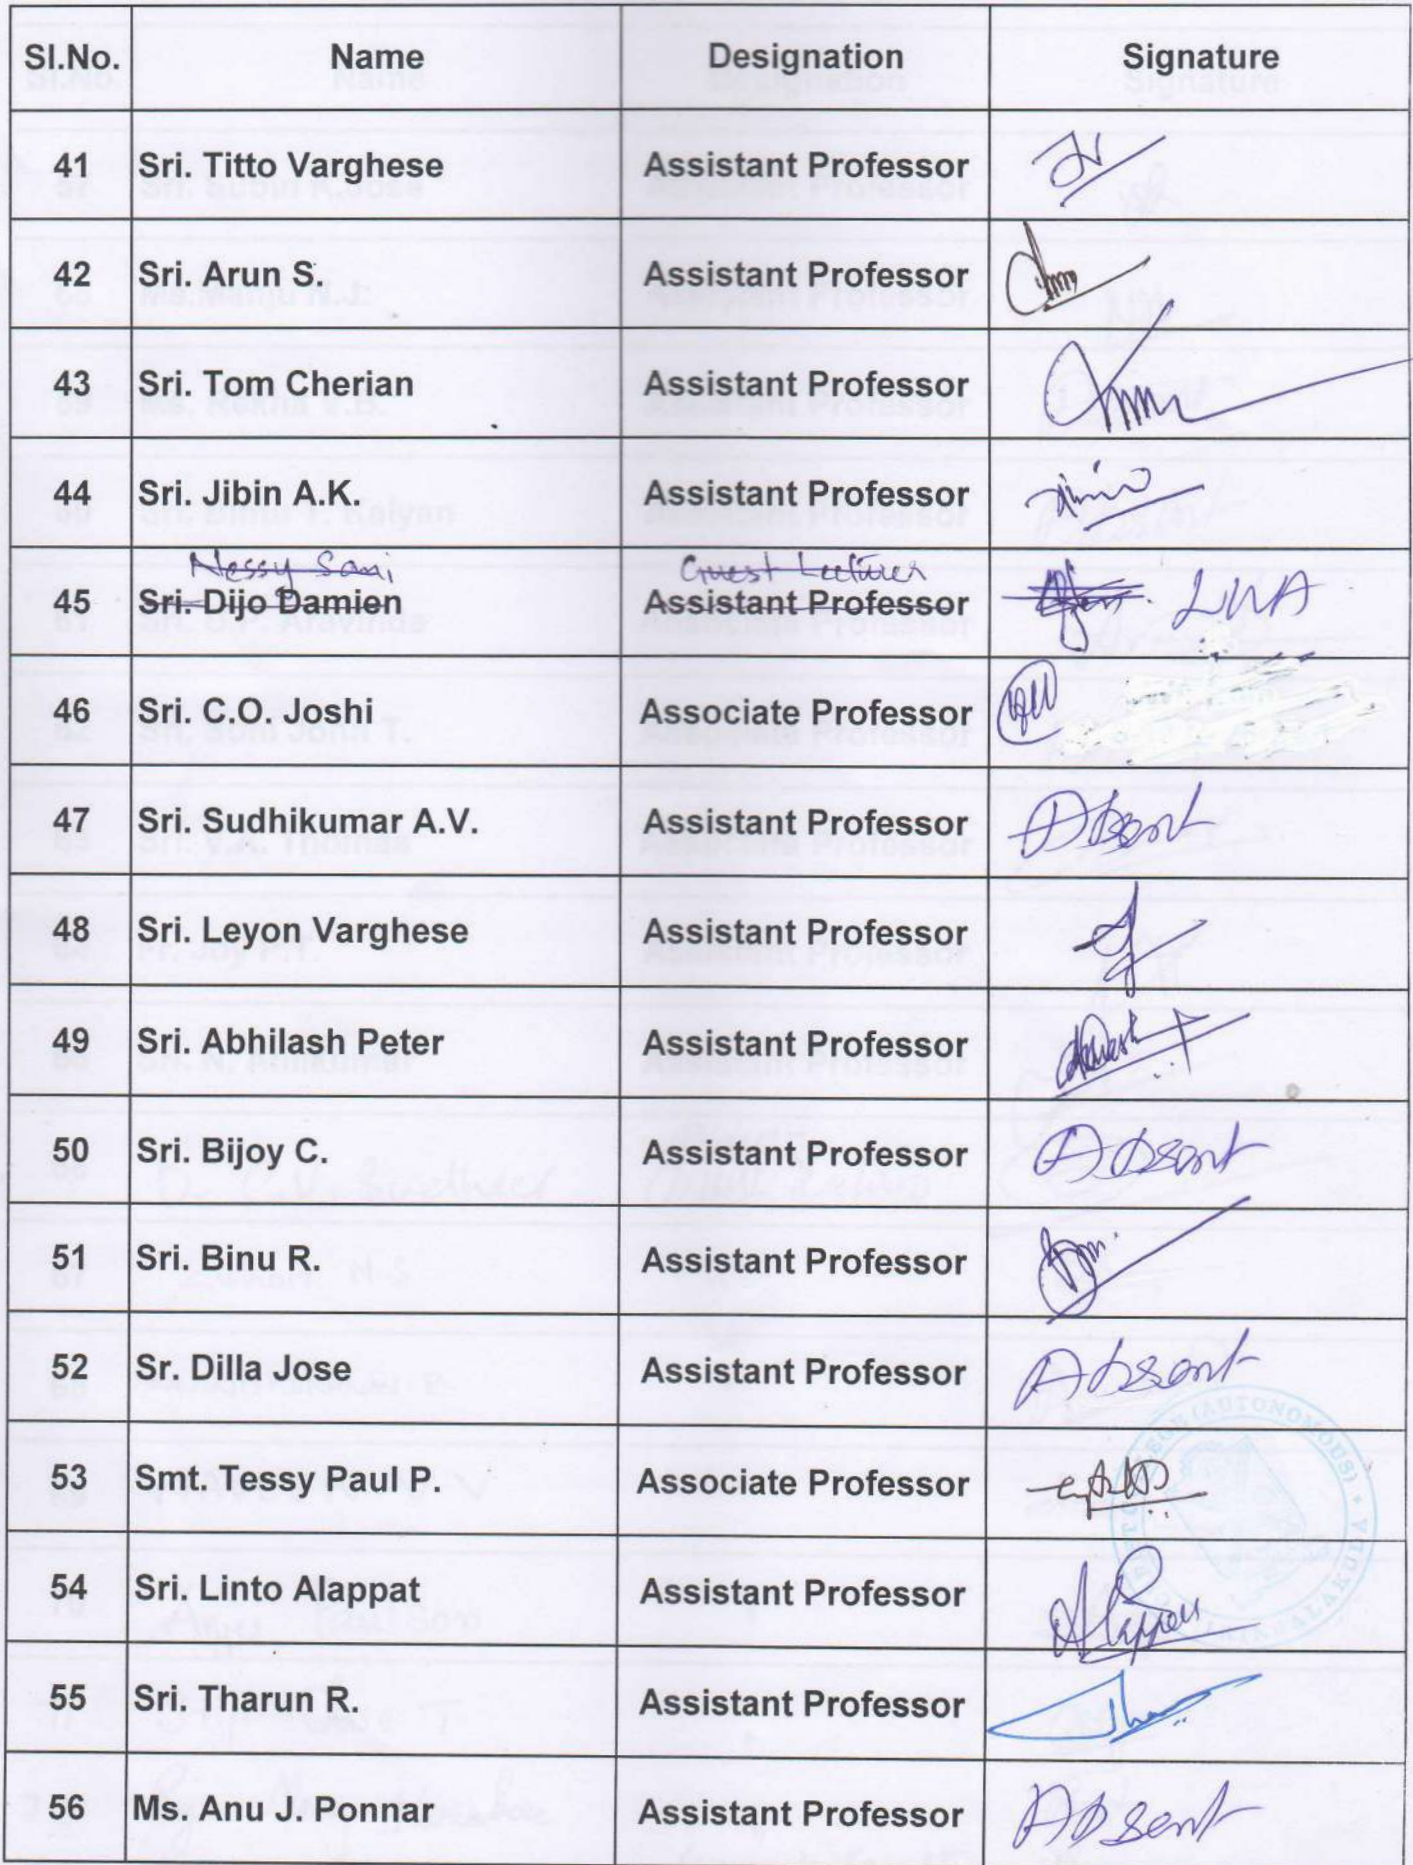 Sl.No. Name Designation Signature
41 Sri. Titto Varghese Assistant Professor
42 Sri. Arun S. Assistant Professor
43 Sri. Tom Cherian Assistant Professor
44 Sri. Jibin A.K. Assistant Professor
Nessy Sani Guest Lecturer
45 Sri. Dijo Damien Assistant Professor LWA
46 Sri. C.O. Joshi Associate Professor
47 Sri. Sudhikumar A.V. Assistant Professor Absent
48 Sri. Leyon Varghese Assistant Professor
49 Sri. Abhilash Peter Assistant Professor
50 Sri. Bijoy C. Assistant Professor Absent
51 Sri. Binu R. Assistant Professor
52 Sr. Dilla Jose Assistant Professor Absent
(AUTONOMOUS)
53 Smt. Tessy Paul P. Associate Professor
54 Sri. Linto Alappat Assistant Professor
55 Sri. Tharun R. Assistant Professor
56 Ms. Anu J. Ponnar Assistant Professor Absent